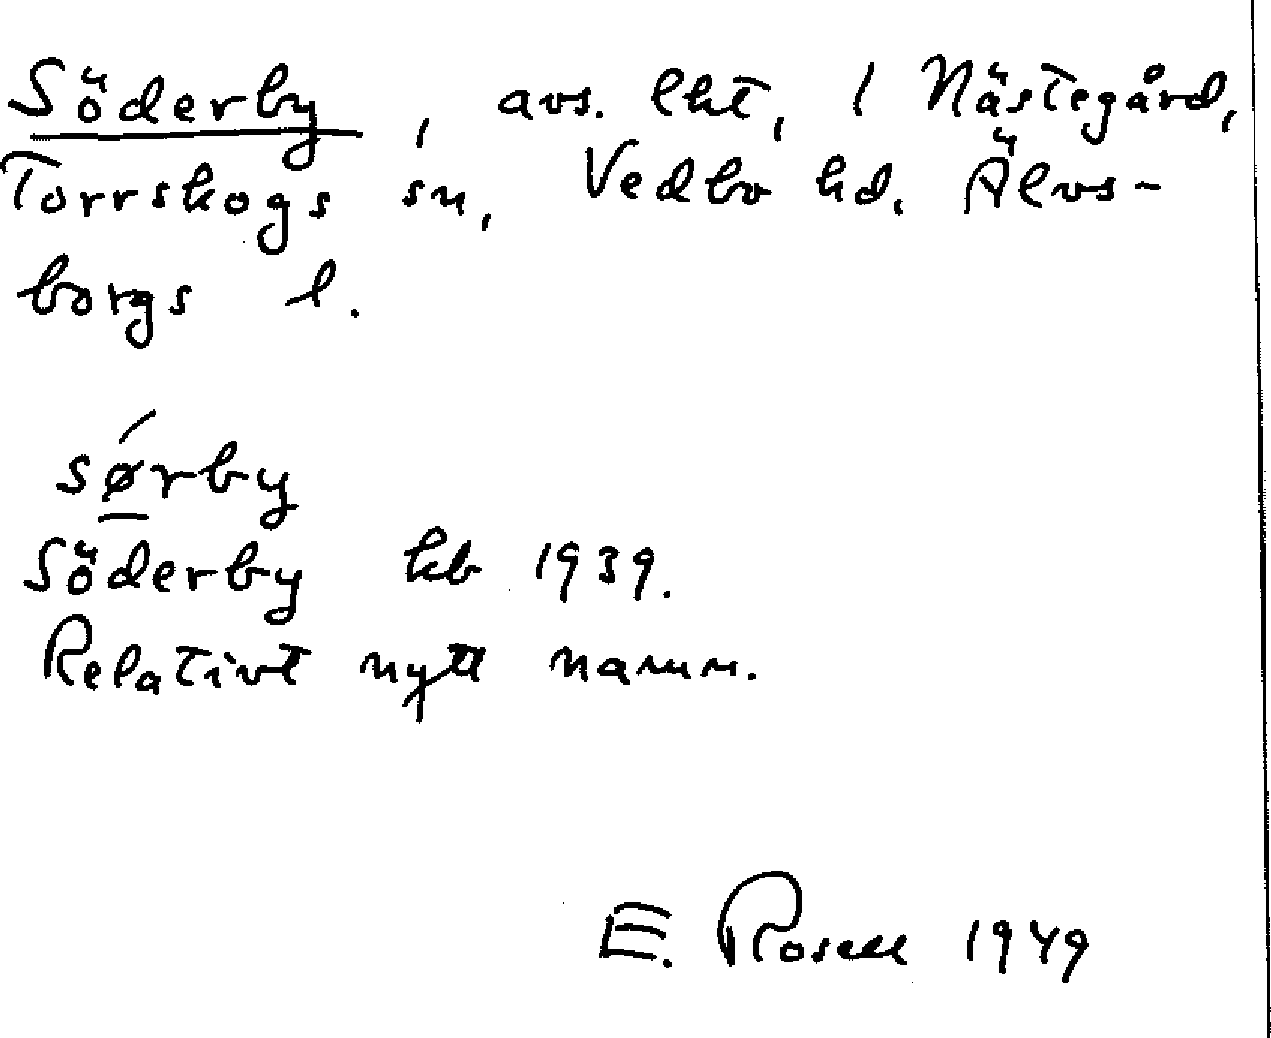 Söderby, avs. lht, 1 Nästegård,
Torrskogs sn, Vedbo hd. Älvs-
borgs l.
sǿ̱rby
Söderby kb 1939.
Relativt nytt namn.
E. Rosell 1949